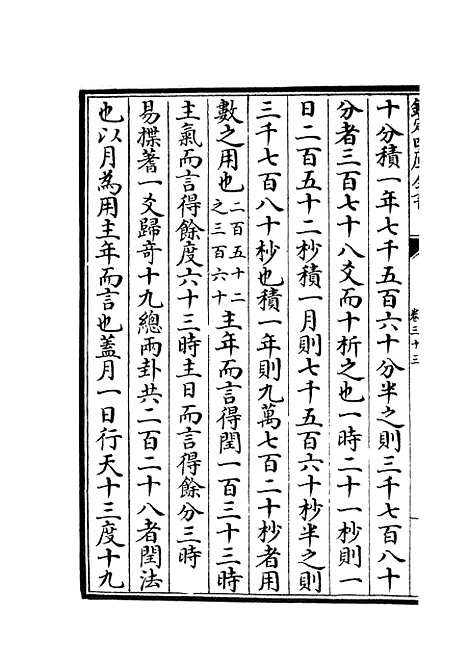 欽定四庫全書
卷三十三
十分積一年七千五百六十分半之則三千七百八十
分者三百七十八爻而十析之也一時二十一杪則一
日二百五十二杪積一月則七千五百六十杪半之則
三千七百八十杪也積一年則九萬七百二十杪者用
數之用也二百五十二之三百六十主年而言得閏一百三十三時
主氣而言得餘度六十三時主日而言得餘分三時
易揲蓍一爻歸竒十九總兩卦共二百二十八者閏法
也以月為用主年而言也蓋月一日行天十三度十九